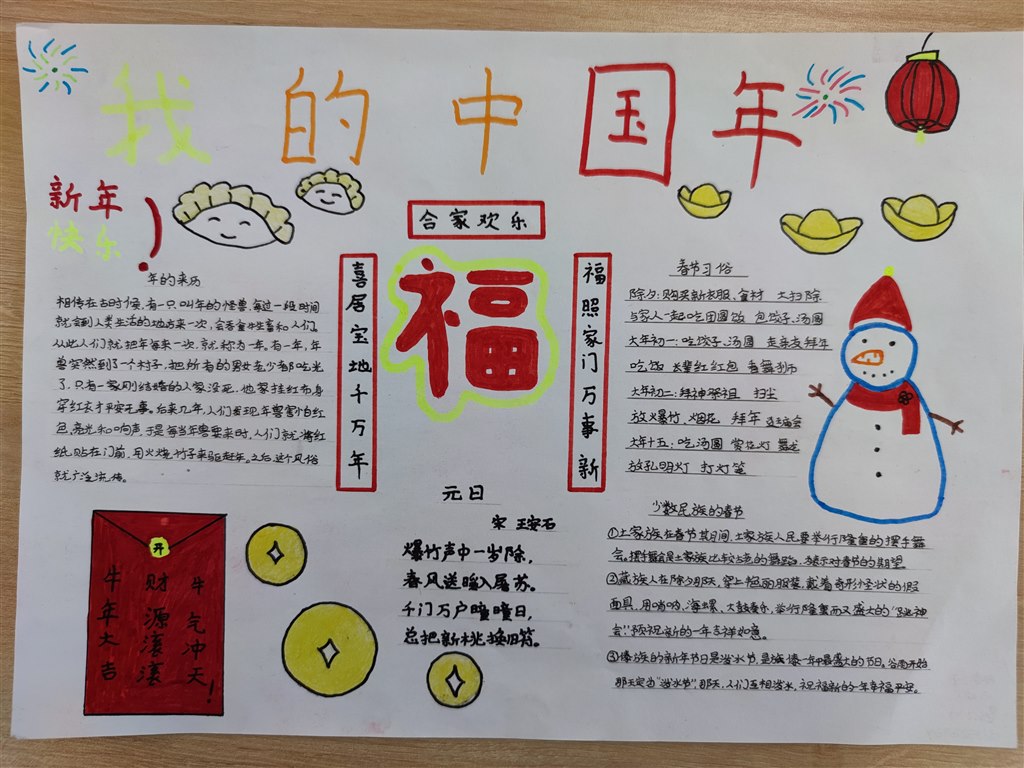 我的中国年
新年
快乐
合家欢乐
喜居宝地千万年
福
福照家门万事新
年的来历
相传在古时候,有一只叫年的怪兽,每过一段时间
就会到人类生活的地方来一次,会吞食牲畜和人们,
从此人们就把年每来一次,就称为一年,有一年,年
兽突然到了个村子,把所有的男女老少都吃光
了,只有一家刚结婚的人家没死,他家挂红布身
穿红衣才平安无事。后来几年,人们发现,年兽害怕红
色、亮光和响声,于是每当年兽要来时,人们就将红
纸贴在门前,用火烧竹子来驱赶年。之后,这个风俗
就广泛流传。
春节习俗
除夕:购买新衣服、食材 大扫除
与家人一起吃团圆饭 包饺子、汤圆
大年初一:吃饺子、汤圆 走亲友拜年
吃饭 长辈红红包 看舞狮
大年初二:拜神祭祖 扫尘
放火爆竹、烟花 拜年 逛庙会
大年十五:吃汤圆 赏花灯 舞龙
放孔明灯 打灯笼
元日
宋 王安石
爆竹声中一岁除,
春风送暖入屠苏。
千门万户曈曈日,
总把新桃换旧符。
少数民族的春节
①土家族在春节其月间,土家族人民要举行隆重的摆手舞
会。摆手舞是土家族比较古老的舞蹈,表示对春节的期望
②藏族人在除夕那天,穿上艳丽服装,戴着奇形怪状的假
面具,用唢呐、海螺、大鼓奏乐,举行隆重而又盛大的“跳神
会”!预祝新的一年吉祥如意。
③傣族的新年节日是泼水节,是族傣一年中最盛大的节日。
那天定为“泼水节”,那天,人们互相泼水,祝福新的一年幸福平安。
开
牛气冲天!
财源滚滚
牛年大吉